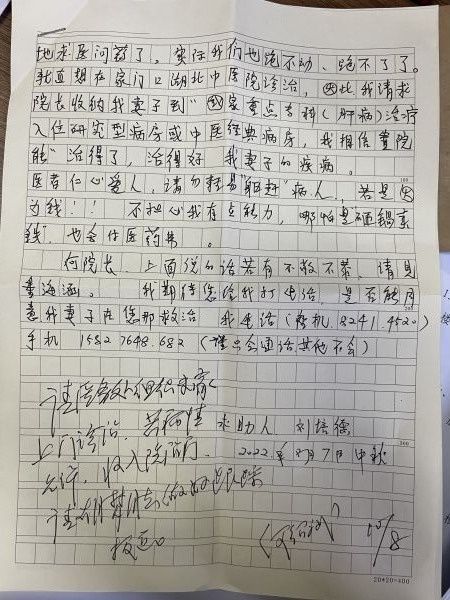 地求医问药了。实际我们也跑不动、跑不了了。
我直想在家门口湖北中医院诊治，因此我请求
院长收纳我妻子到"国家重点专科（肝病）治疗
入住研究型病房或中医经典病房，我相信贵院
能"治得了，治得好"我妻子的疾病。
医者仁心爱人，请勿轻易"驱赶"病人，若是因
为钱！！ 不担心我有点能力，哪怕是砸锅卖
钱，也会付医药费。
何院长，上面说的话若有不敬不恭，请见
量海涵。 我期待您给我打电话，是否能同
意我妻子在您那救治 我电话（座机.8241.4520）
手机 1582 7648.682（ 只会通话其他不会）
请医务处组织专家
上门诊治，若病情 求助人 刘培
允许，收入院治疗。 2022.年 月7日 中秋
请 做好 跟踪
报 8
20*20=400